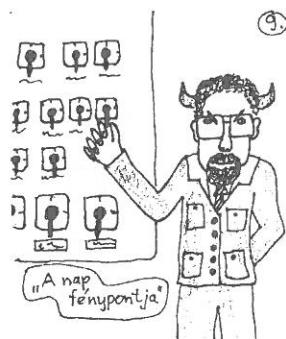 9.
„A nap
fénypontja"